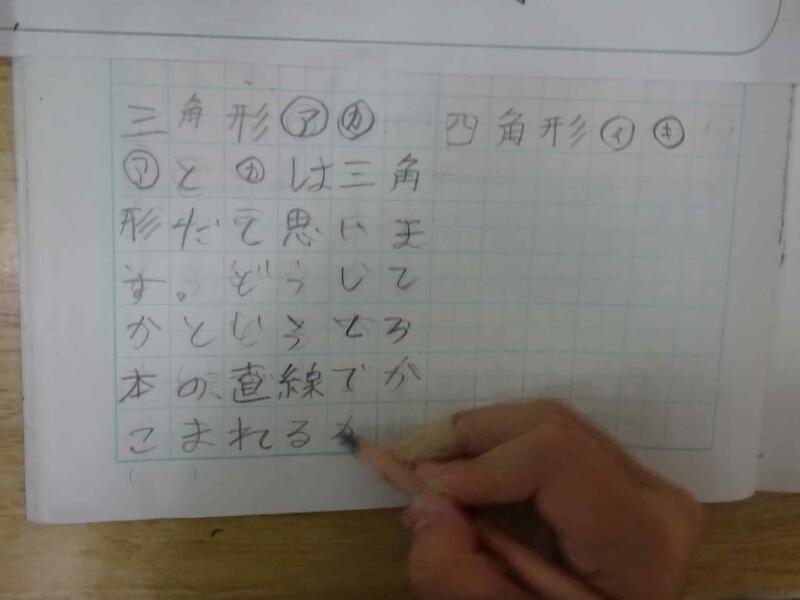 三角形㋐㋕
四角形㋑㋖
㋐と㋕は三角
形だて思いま
す。どうして
かというと3
本の直線でか
こまれるか